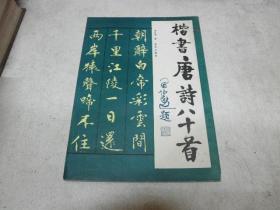 楷書唐詩八十首
題
朝辭白帝彩雲間
千里江陵一日還
兩岸猿聲啼不住